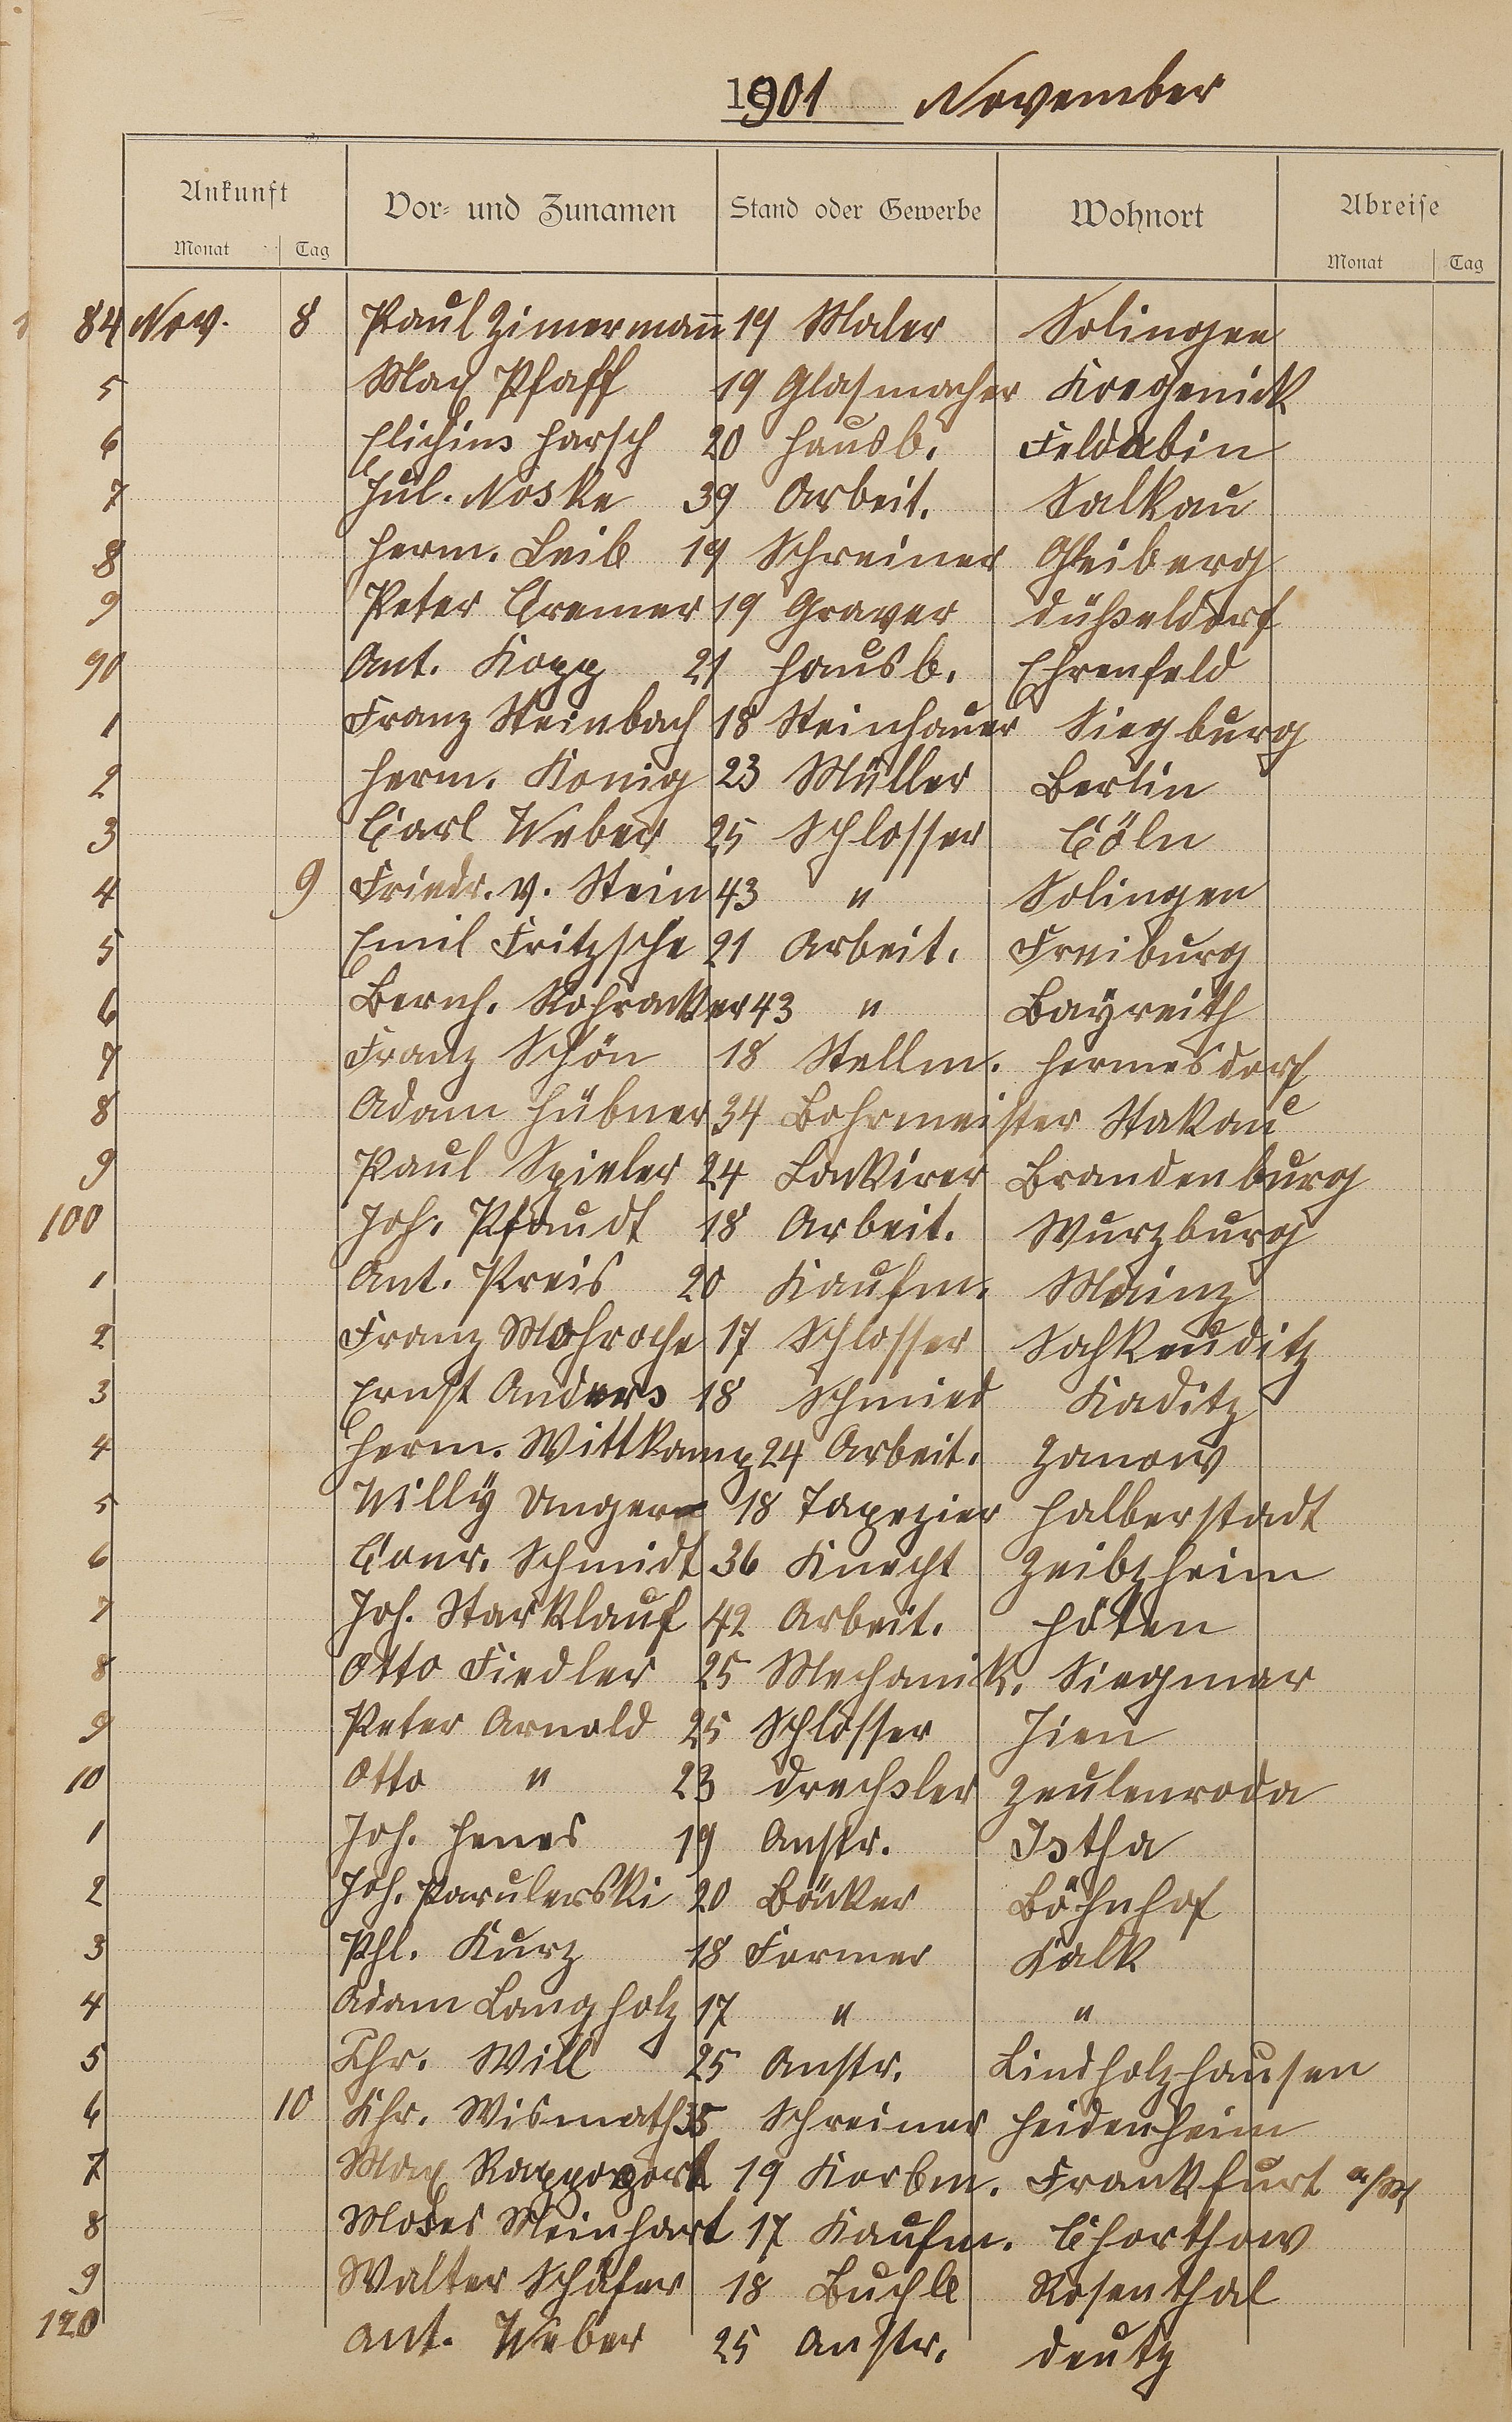 1901 November
Ankunft Vor- und Zunamen Stand oder Gewerbe Wohnort Abreise
Monat Tag Monat Tag
84 Nov. 8 Paul Zimermann 19 Maler Solingen
5 Max Pfaff 19 Glasmacher
6 Harsch 20 Hausb. Feldabin
7 Jul. Noske 39 Arbeit. Salkau
8 Herm. Leib 19 Schreiner Gleiberg
9 Peter Cremer 19 Graver Düßeldorf
90 Ant. Kopp 21 Hausb. Ehrenfeld
1 Franz Steinbach 18 Steinhauer Siegburg
2 Herm. Konig 23 Müller Berlin
3 Carl Weber 25 Schlosser Cöln
4 9 Friedr. v. Stein 43 " Solingen
5 Emil Fritzsche 21 Arbeit. Freiburg
6 Bernh. Rohracker 43 " Bayreith
7 Franz Schön 18 Stellm. Hermesdorf
8 Adam Hübner 34 Bohrmeister Stakau
9 Paul Spieler 24 Lackirer Brandenburg
100 Joh. Pfaudt 18 Arbeit. Wurzburg
1 Ant. Preis 20 Kaufm. Mainz
2 Franz Mohroche 17 Schlosser Sahkeuditz
3 Ernst Anders 18 Schmied Kaditz
4 Herm. Wittkamp 24 Arbeit. Zanow
5 Willy Unger 18 Tapezier Halberstadt
6 Conr. Schmidt 36 Knecht Zeibzheim
7 Joh. Starklauf 42 Arbeit. Höten
8 Otto Fiedler 25 Mechanik. Siegmar
9 Peter Arnold 25 Schlosser
10 Otto " 23 Drechsler Zeulenroda
1 Joh. Henes 19 Anstr. Istha
2 Joh. Parulerski 20 Bäcker Böhnhof
3 Phl. Kurz 18 Former Kalk
4 Adam Langholz 17 " "
5 Chr. Will 25 Anstr. Lindholzhausen
6 10 Chr. Wismath 35 Schreiner Heidenheim
7 Max Rappoport 19 Korbm. Frankfurt a/M
8 Moses Meinhart 17 Kaufm. Chorthow
9 Walter Schäfer 18 Buchb Rosenthal
120 Ant. Weber 25 Anstr. Deutz